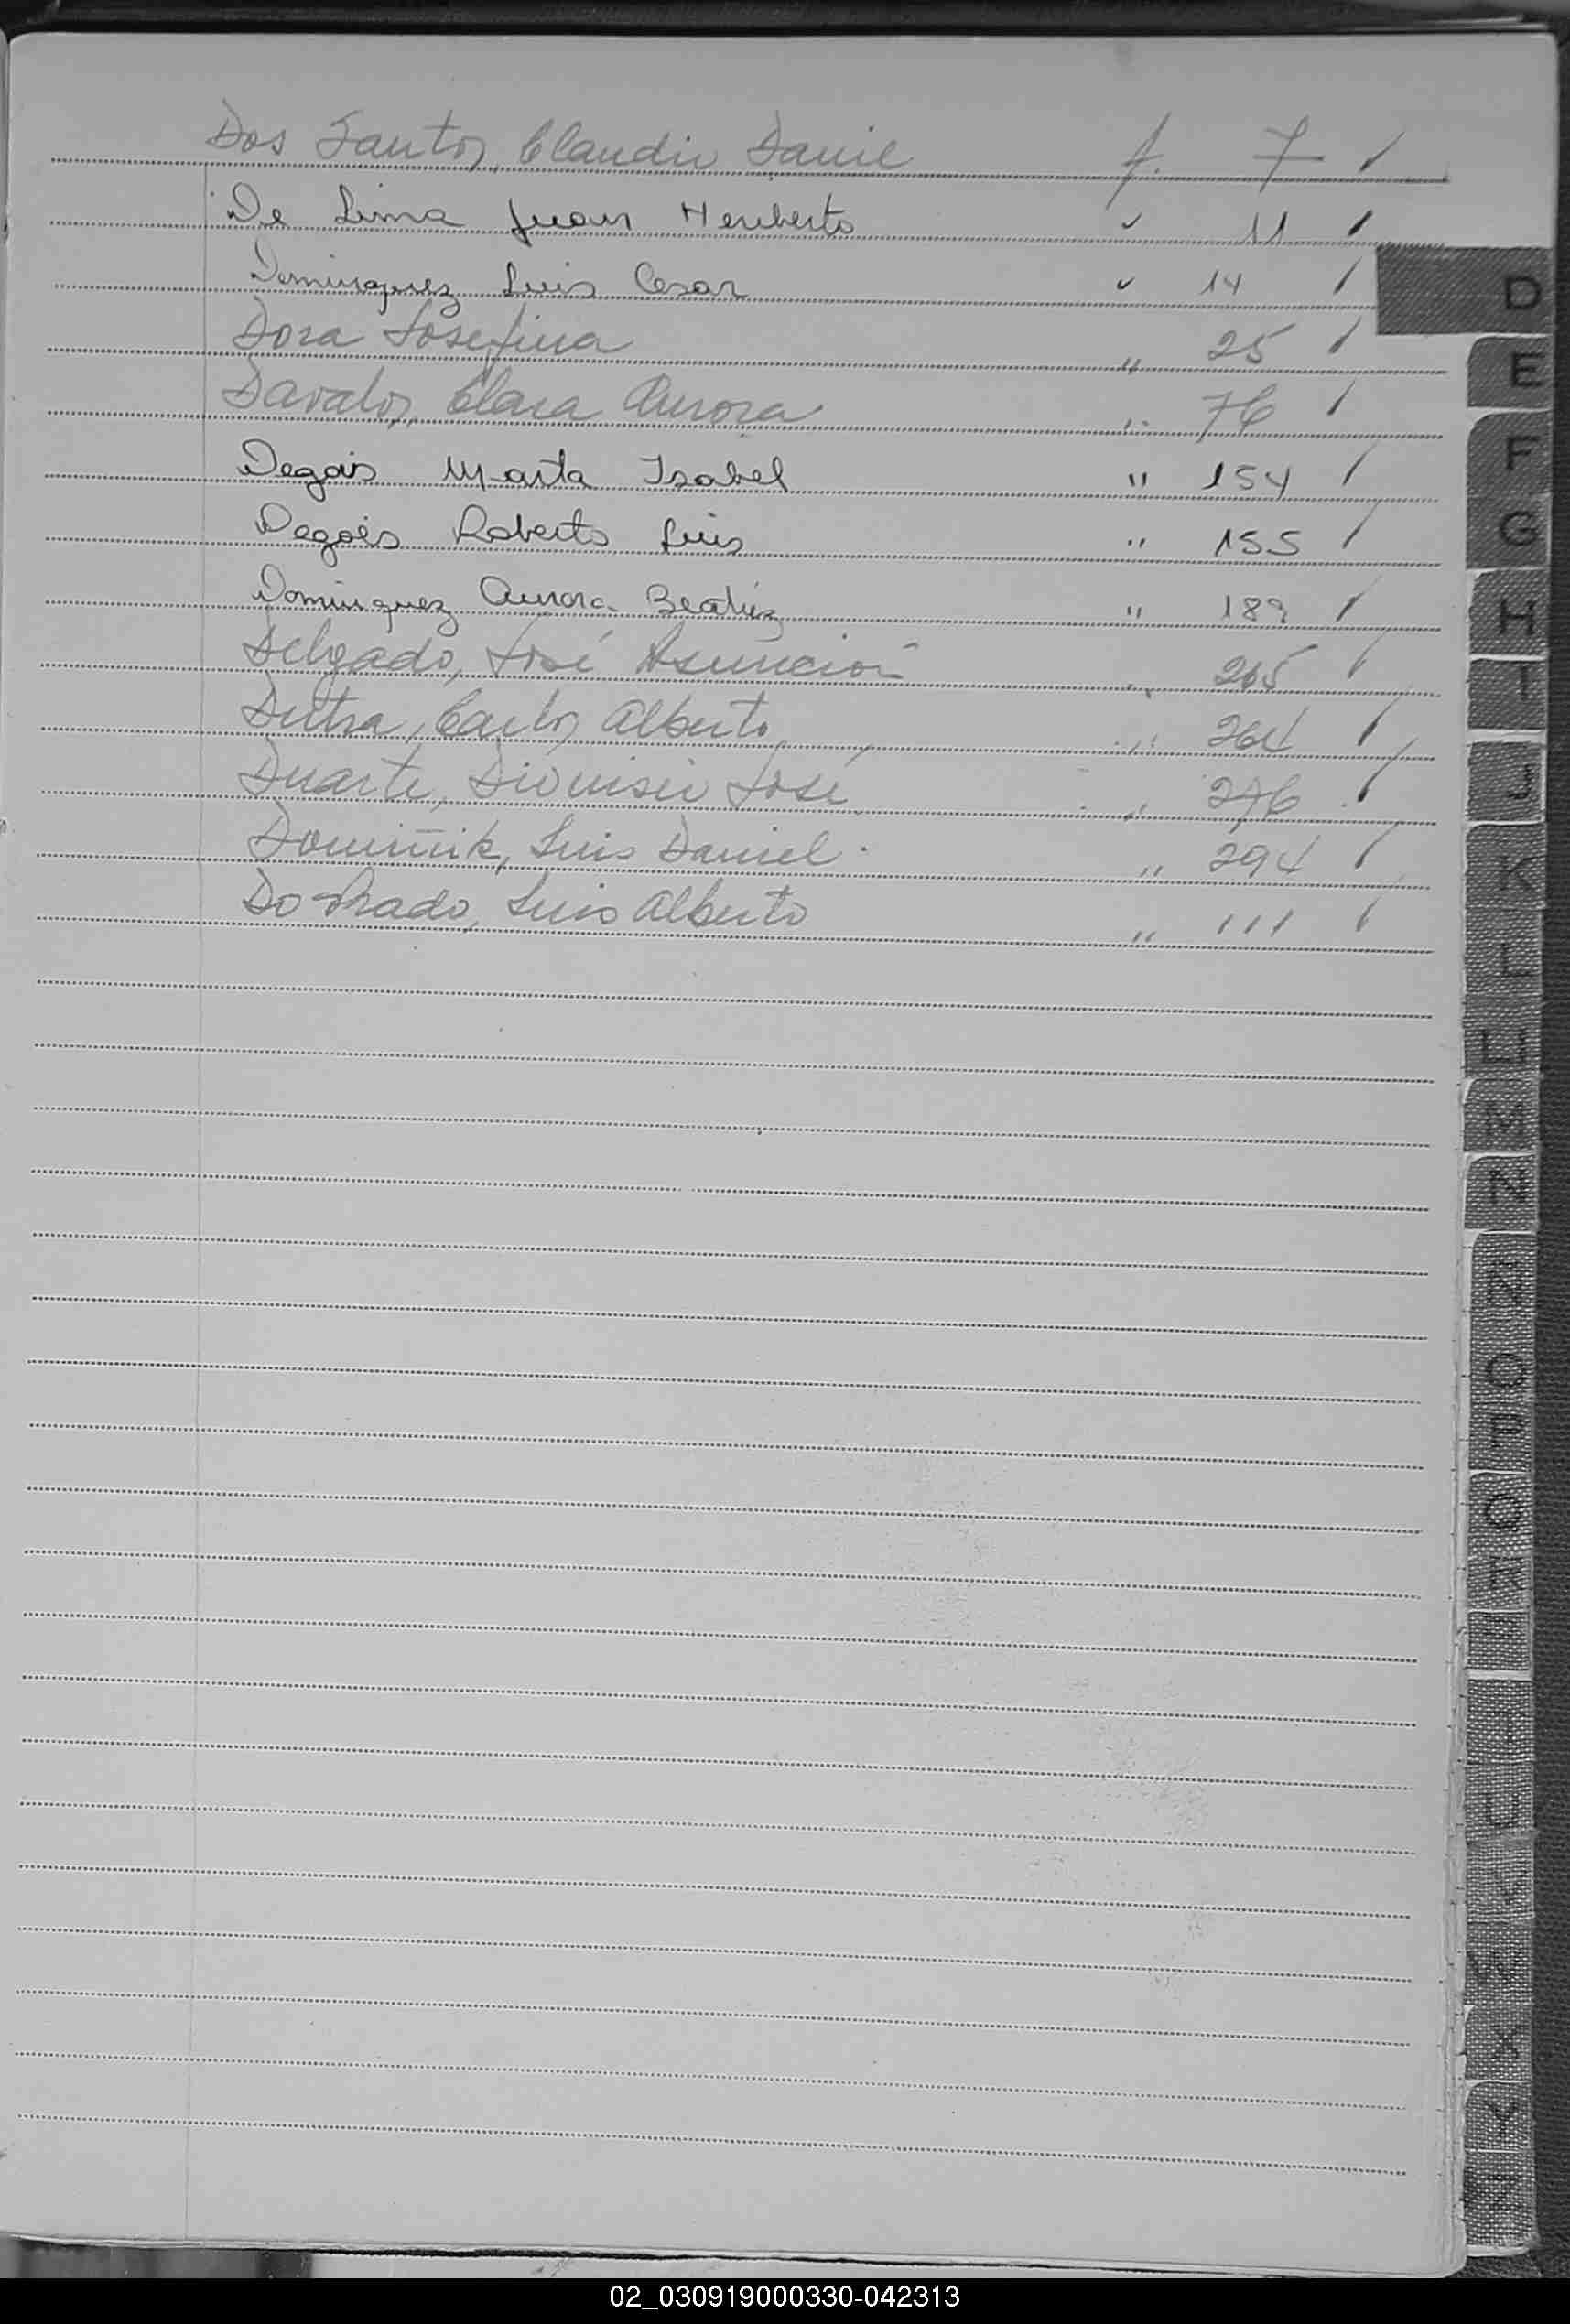 Dos Santos, Claudio Daniel f. 7 ✓
De Lima Juan Heriberto " 11 ✓
D
Dominguez Luis Cesar " 14 ✓
Dora Josefina " 25 ✓
E
Davalos, Clara Aurora " 76 ✓
F
Degois Marta Isabel " 154 ✓
G
Degois Roberto Luis " 155 ✓
Dominguez Aurora Beatriz " 189 ✓
H
Delgado, José Asunción " 265 ✓
I
Dutra, Carlos Alberto " 264 ✓
Duarte, Dionisio José " 276 ✓
J
Dominik, Luis Daniel " 294 ✓
K
Do Prado, Luis Alberto " 111 ✓
L
LL
M
N
Ñ
O
P
Q
R
S
T
U
V
W
X
Y
Z
02_030919000330-042313